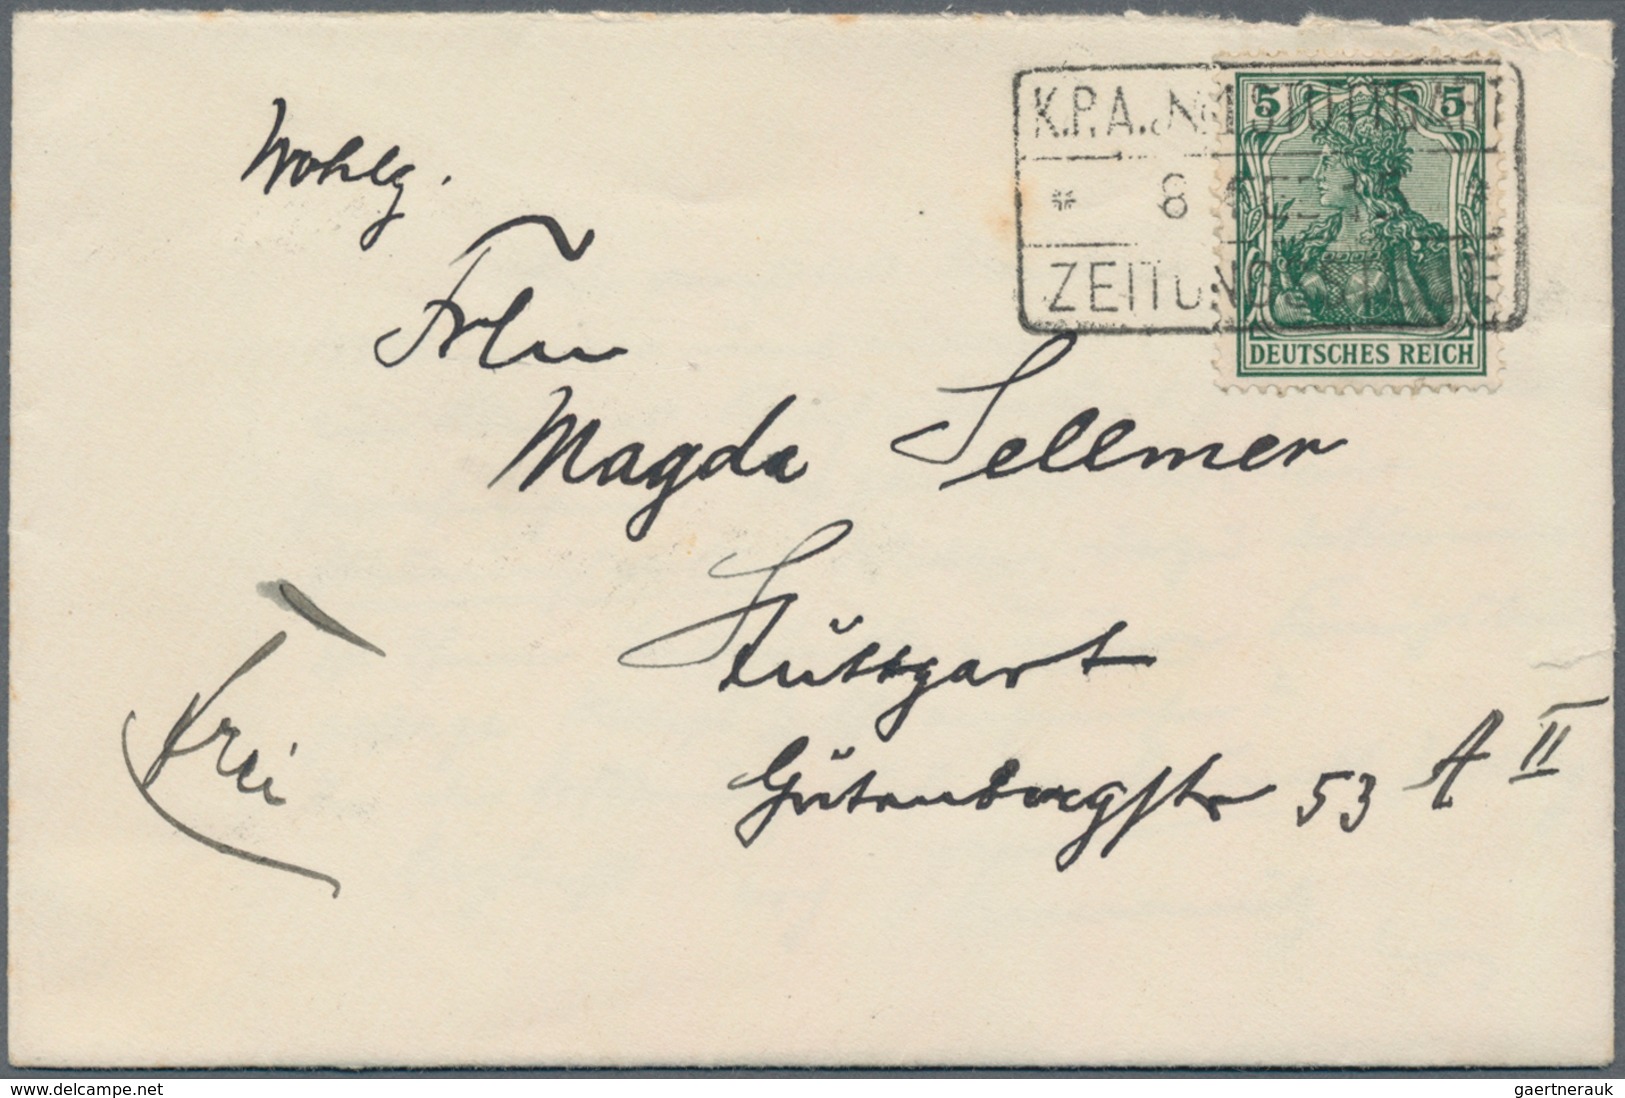 K.P.A. No 1 STUTTGART
5 5
* 8
ZEITUNGS
DEUTSCHES REICH
Wohlg.
Frln
Magda Sellmer
Stŭttgart
Gŭtenbergstr 53 A II
frei
www.delcampe.net
gaertnerauk